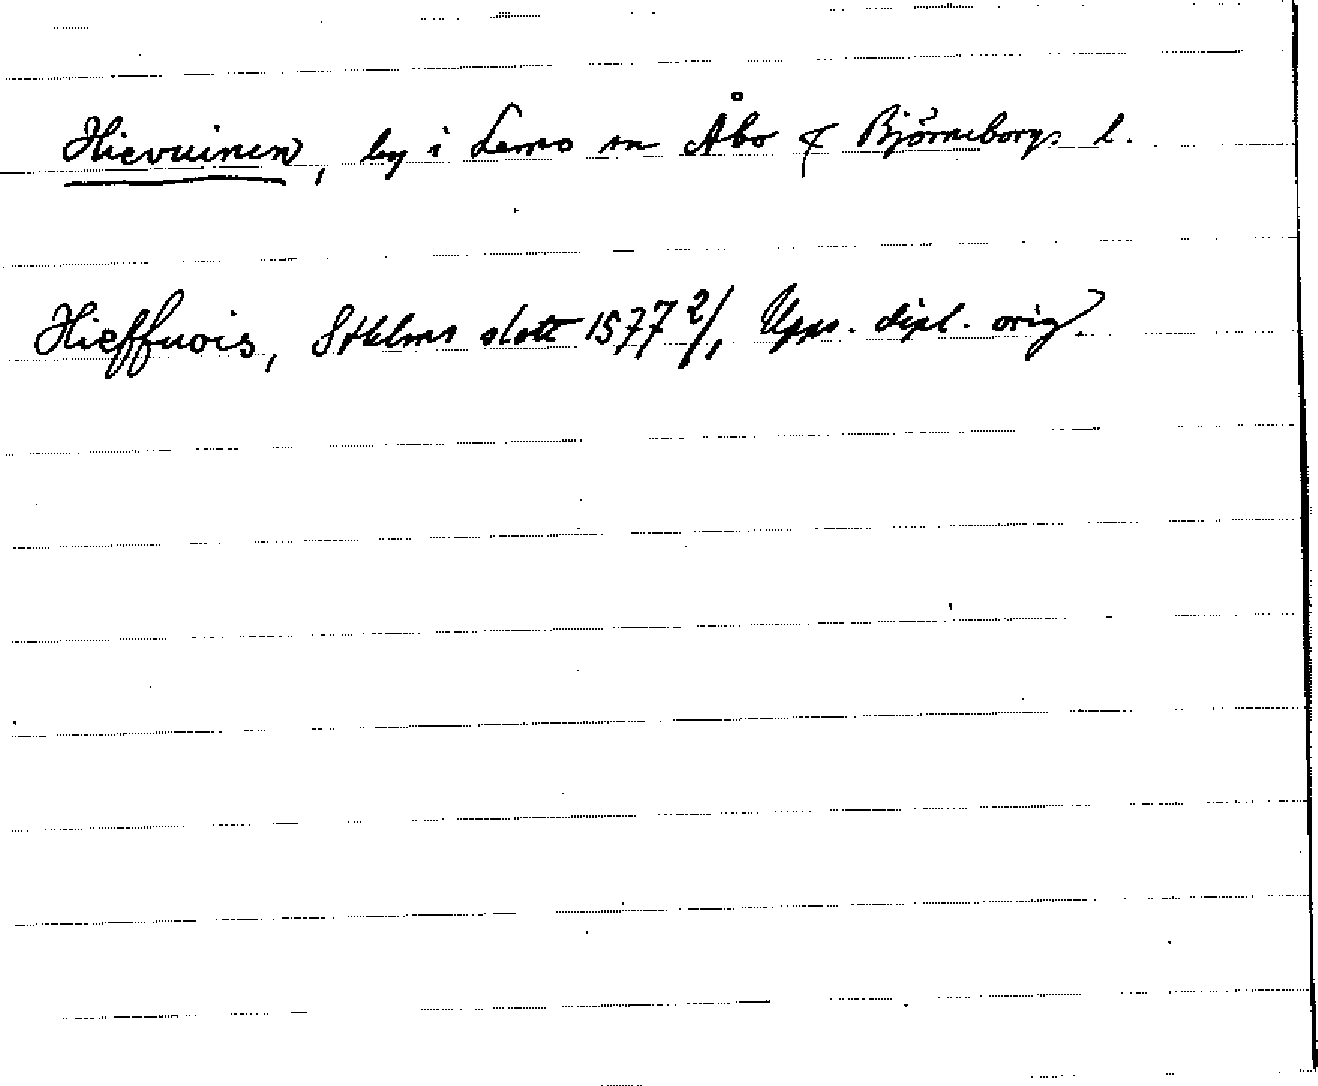 Hievuinen, by i Lemo sn Åbo & Björneborgs l.
Hieffuois, Sthlms slott 1577 2/1, Upps. dipl. orig.